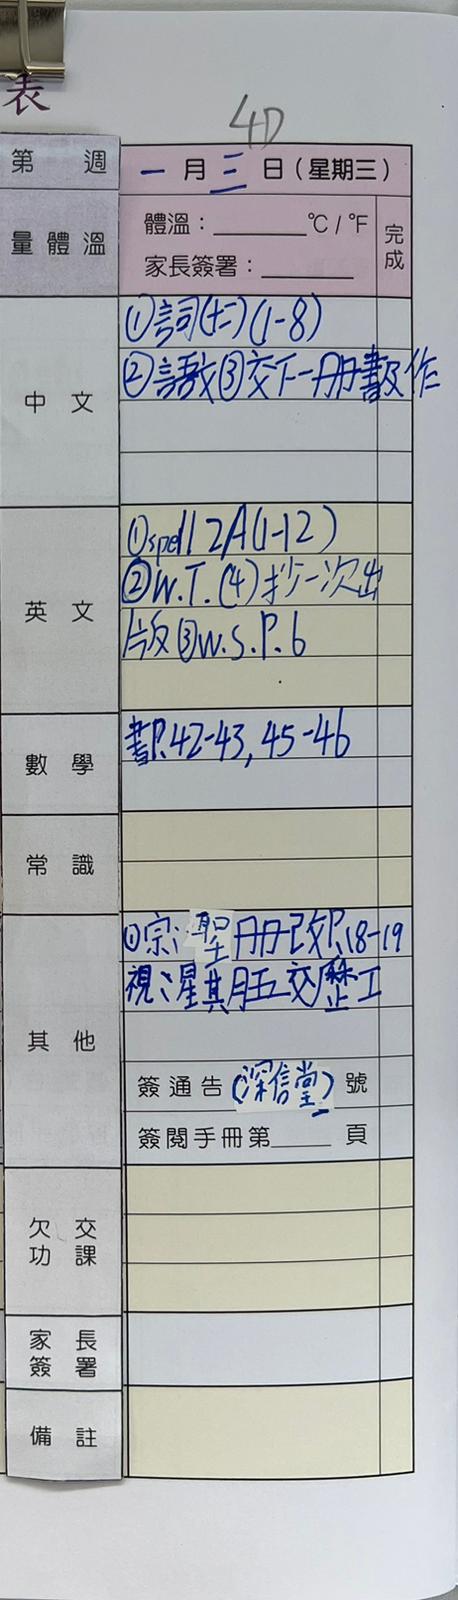 表
4D
第 週
一月三日(星期三)
量體溫
體溫:________°C/°F
家長簽署:________
完成
中文
①詞(十二)(1-8)
②語文③交下一冊書及作
英文
①spell 2A(1-12)
②W.T.(4)抄一次出
版③W.S.P.6
數學
書P.42-43,45-46
常識
其他
①宗:聖冊改P.18-19
視:星其月五交歷工
簽通告(深信堂)號
簽閱手冊第____頁
欠交功課
家長簽署
備註